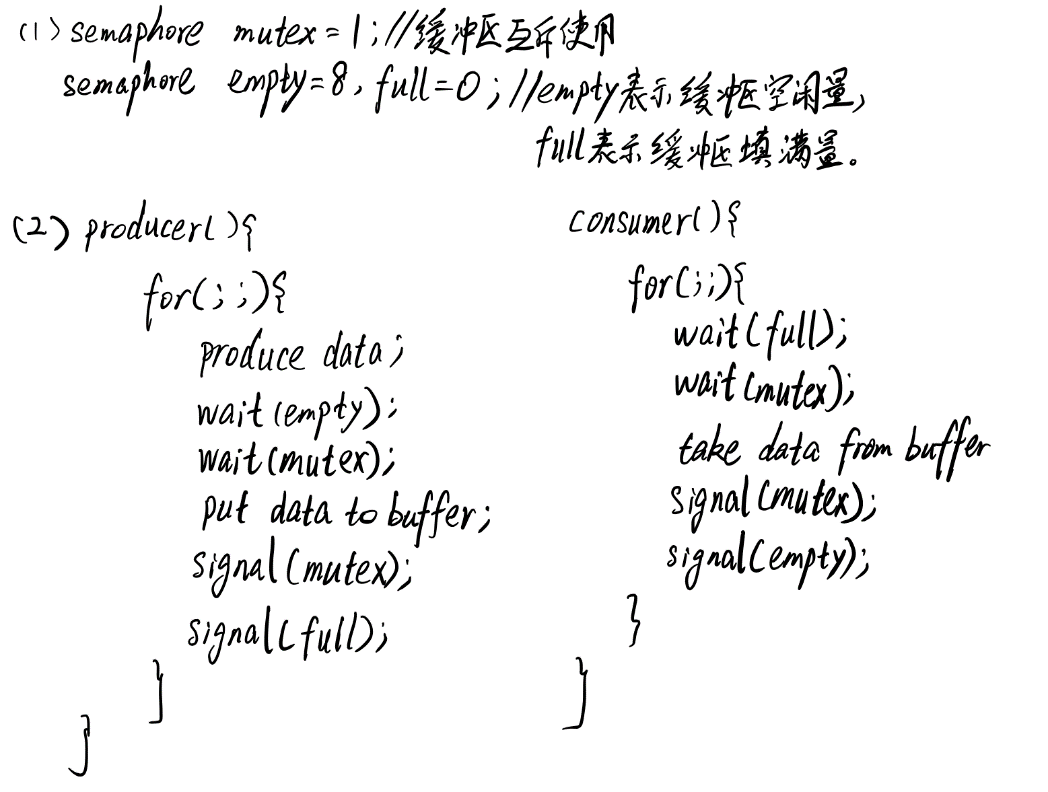 (1) semaphore mutex = 1; //缓冲区互斥使用
semaphore empty=8, full=0; //empty表示缓冲区空闲量,
full表示缓冲区填满量。
(2) producer(){
for(;;){
produce data;
wait(empty);
wait(mutex);
put data to buffer;
signal(mutex);
signal(full);
}
}
consumer(){
for(;;){
wait(full);
wait(mutex);
take data from buffer
signal(mutex);
signal(empty);
}
}